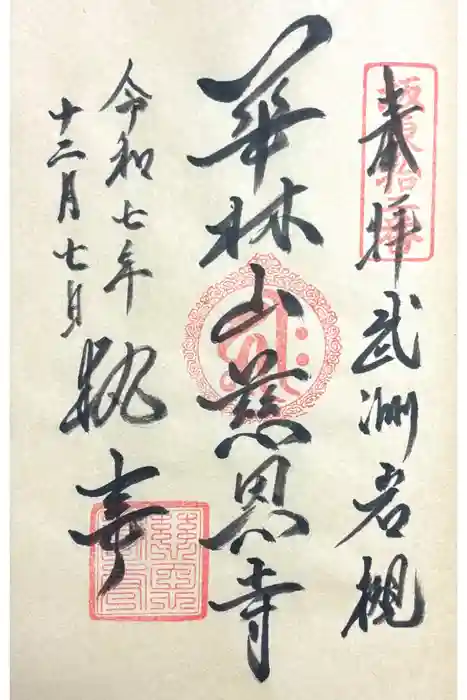 奉拝 武州岩槻
坂東拾二番
華林山慈恩寺
令和七年
十二月七日
執事